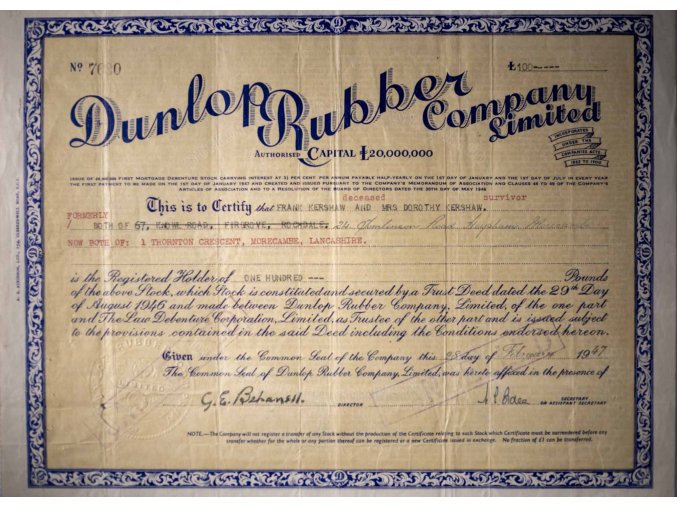 Nº 7680
£100-----
Dunlop Rubber Company Limited
INCORPORATED
UNDER THE
COMPANIES ACTS
AUTHORISED CAPITAL £20,000,000
FIRST MORTGAGE DEBENTURE STOCK CARRYING INTEREST AT 3½ PER CENT PER ANNUM PAYABLE HALF-YEARLY ON THE 1ST DAY OF JANUARY AND THE 1ST DAY OF JULY IN EVERY YEAR
THE FIRST PAYMENT TO BE MADE ON THE 1ST DAY OF JANUARY 1947 AND CREATED AND ISSUED PURSUANT TO THE COMPANY'S MEMORANDUM OF ASSOCIATION AND CLAUSES 45 TO 49 OF THE COMPANY'S
ARTICLES OF ASSOCIATION AND TO A RESOLUTION OF THE BOARD OF DIRECTORS DATED THE 30TH DAY OF MAY 1946
deceased survivor
This is to Certify that FRANK KERSHAW AND MRS DOROTHY KERSHAW.
FORMERLY
BOTH OF 67, KNOWL ROAD, FIRGROVE, ROCHDALE. 24 Tomlinson Road Heysham Morecambe
NOW BOTH OF: 1 THORNTON CRESCENT, MORECAMBE, LANCASHIRE.
is the Registered Holder of ONE HUNDRED --- Pounds
of the above Stock, which Stock is constituted and secured by a Trust Deed dated the 29th Day
of August 1946 and made between Dunlop Rubber Company, Limited, of the one part
and The Law Debenture Corporation, Limited, as Trustee of the other part and is issued subject
to the provisions contained in the said Deed including the Conditions endorsed hereon.
Given under the Common Seal of the Company this 28 day of February 1947.
The Common Seal of Dunlop Rubber Company, Limited, was hereto affixed in the presence of
DIRECTOR
SECRETARY
OR ASSISTANT SECRETARY
NOTE.—The Company will not register a transfer of any Stock without the production of the Certificate relating to such Stock which Certificate must be surrendered before any
transfer whether for the whole or any portion thereof can be registered or a new Certificate issued in exchange. No fraction of £1 can be transferred.